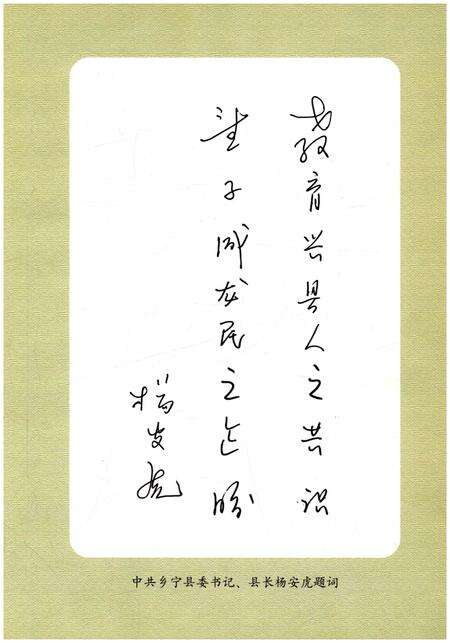 教育兴县人之共识
望子成龙民之企盼
杨安虎
中共乡宁县委书记、县长杨安虎题词